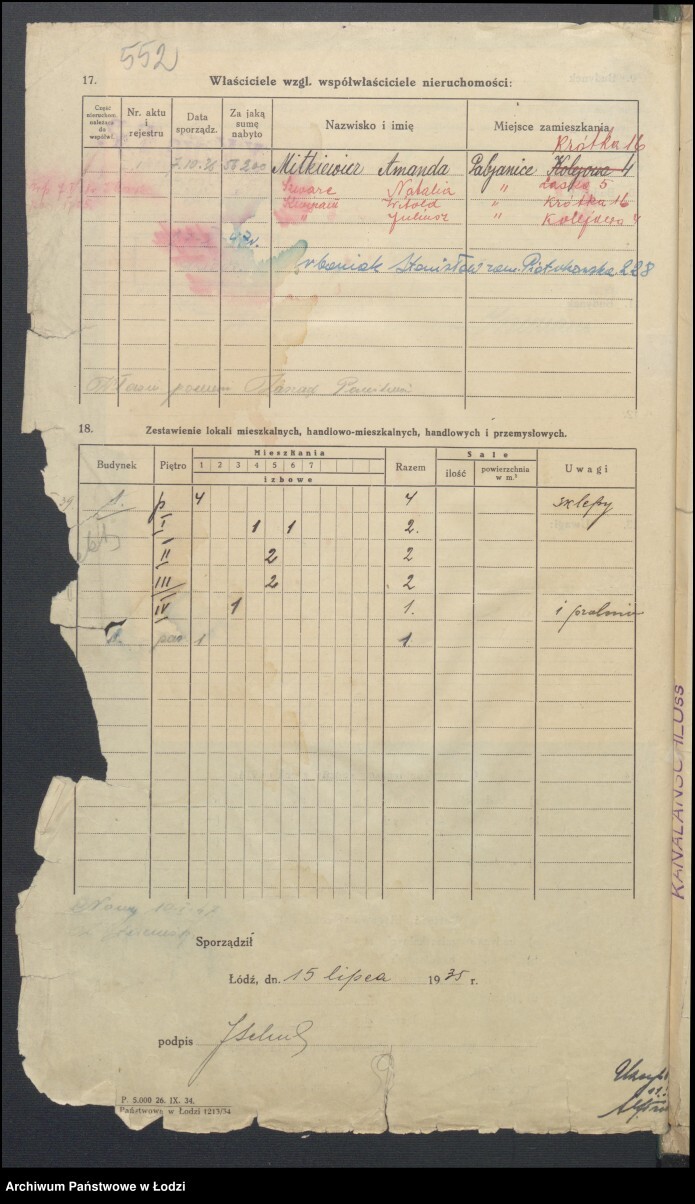 552
17. Właściciele wzgl. współwłaściciele nieruchomości:
Część nieruchom. należąca do współwł. Nr. aktu i rejestru Data sporządz. Za jaką sumę nabyto Nazwisko i imię Miejsce zamieszkania
Krótka 16
7.10.36 Mitkiewicz Amanda Pabjanice Kolejowa 4
Szwarc Natalia " 5
Witold " Krótka 16
" Juljusz " Kolejowa 4
47r.
Stanisław zam. Piotrkowska 228
18. Zestawienie lokali mieszkalnych, handlowo-mieszkalnych, handlowych i przemysłowych.
Budynek Piętro Mieszkania Razem Sale Uwagi
1 2 3 4 5 6 7 ilość powierzchnia w m.²
izbowe
1. p 4 4 sklepy
I 1 1 2.
II 2 2
III 2 2
IV 1 1. i pralnia
1 1
Sporządził
Łódź, dn. 15 lipca 1935 r.
podpis
P. 5.000 26. IX. 34.
Państwowa w Łodzi 1213/34
KANALANSCHLUSS
Archiwum Państwowe w Łodzi